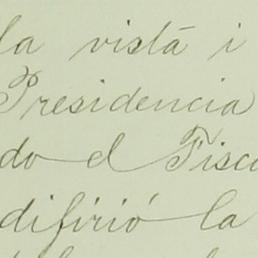 la vistá i
Presidencia
do el Fisc
difirió la